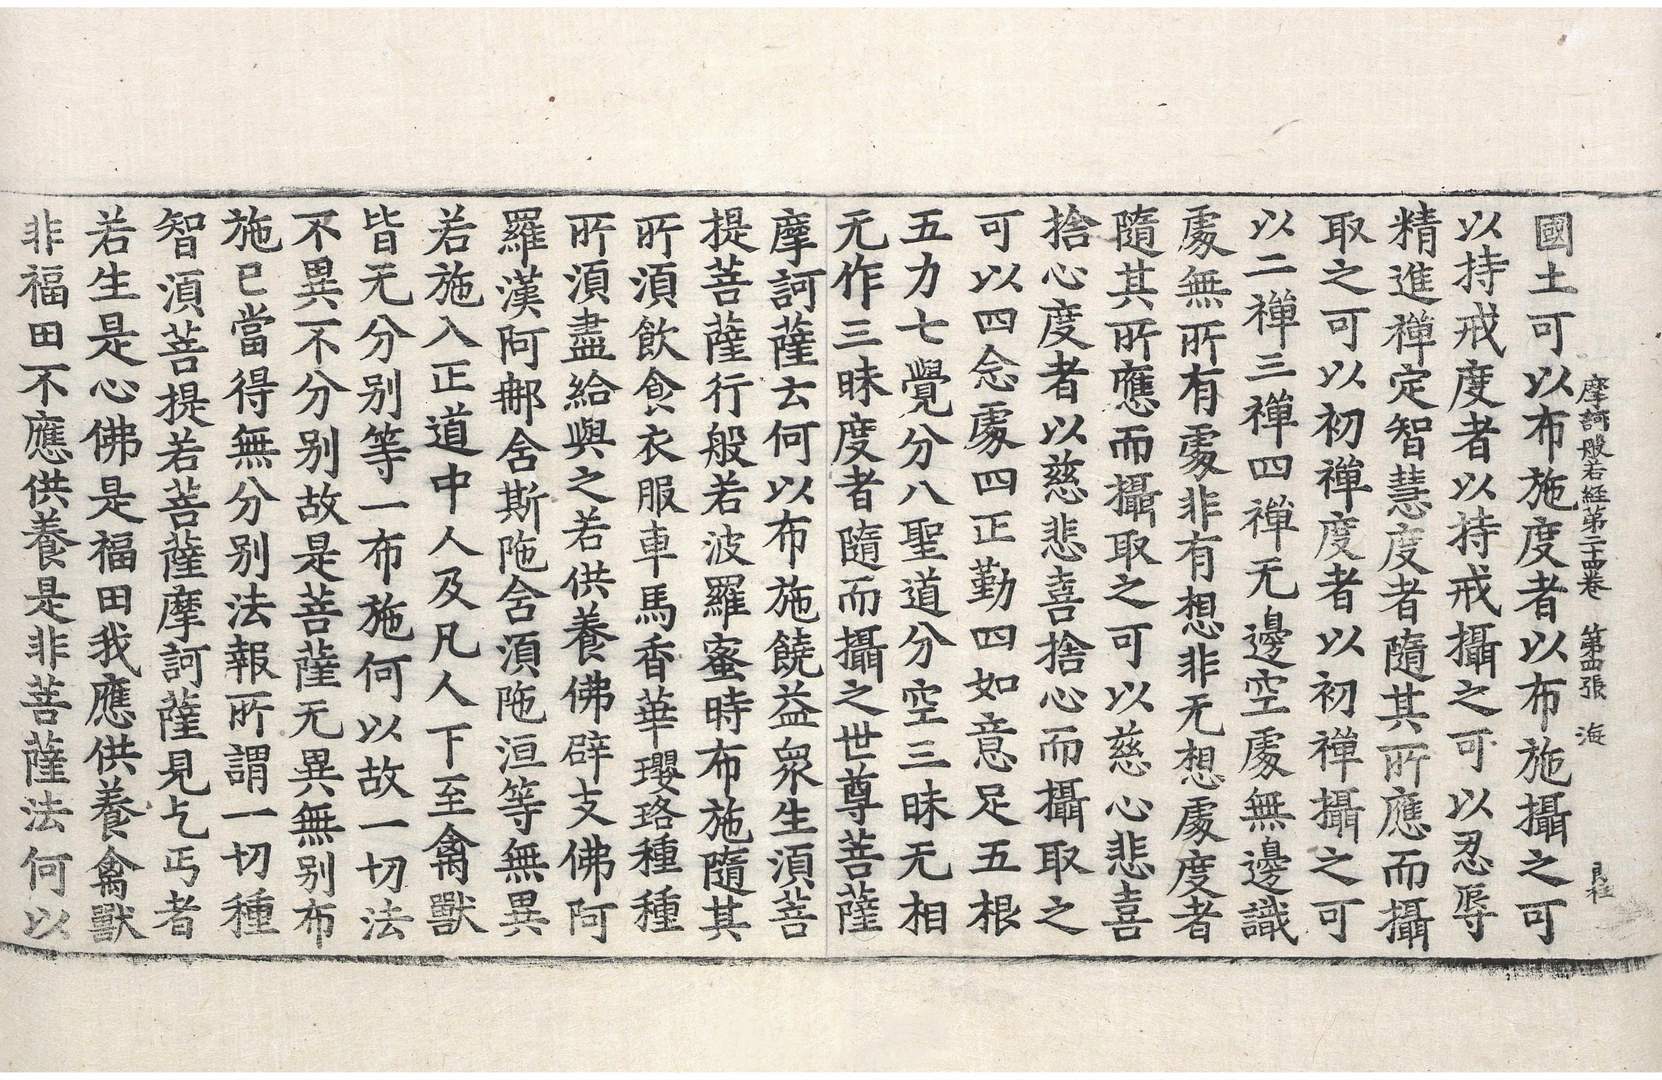 摩訶般若經第二十四卷 第四張 海
國土可以布施度者以布施攝之可
以持戒度者以持戒攝之可以忍辱
精進禪定智慧度者隨其所應而攝
取之可以初禪度者以初禪攝之可
以二禪三禪四禪无邊空處無邊識
處無所有處非有想非无想處度者
隨其所應而攝取之可以慈心悲喜
捨心度者以慈悲喜捨心而攝取之
可以四念處四正勤四如意足五根
五力七覺分八聖道分空三昧无相
无作三昧度者隨而攝之世尊菩薩
摩訶薩云何以布施饒益衆生湏菩
提菩薩行般若波羅蜜時布施隨其
所湏飲食衣服車馬香華瓔珞種種
所湏盡給與之若供養佛辟支佛阿
羅漢阿那舍斯陁舍湏陁洹等無異
若施入正道中人及凡人下至禽獸
皆无分别等一布施何以故一切法
不異不分别故是菩薩无異無别布
施已當得無分别法報所謂一切種
智湏菩提若菩薩摩訶薩見乞丐者
若生是心佛是福田我應供養禽獸
非福田不應供養是非菩薩法何以